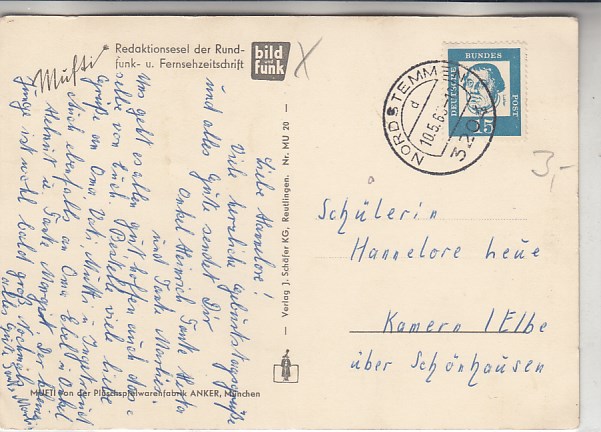 Mufti
Redaktionsesel der Rund-
funk- u. Fernsehzeitschrift
bild
und
funk
Liebe Hannelore!
Viele herzliche Geburtstagsgrüße
und alles Gute sendet Dir
Onkel Heinrich Tante Herta
und Tante Marlies
Uns geht es allen gut hoffen auch das
selbe von Euch. Bestelle viele liebe
Grüße an Oma, Vati, Mutti u.
auch ebenfalls an Oma Ebel u. Onkel
Helmut u. Tante Margret der
Junge ist wohl bald groß
alles Gute Tante
MUFTI von der Plüschspielwarenfabrik ANKER, München
— Verlag J. Schäfer KG, Reutlingen. Nr. MU 20 —
NORDSTEMMEN
d
10.5.63
320
DEUTSCHE BUNDESPOST
15
3,-
Schülerin
Hannelore Leue
Kamern / Elbe
über Schönhausen